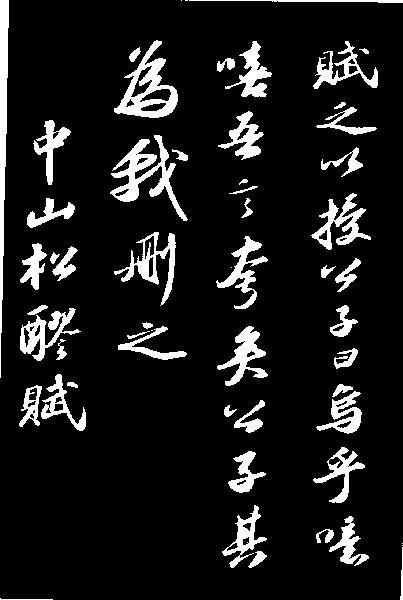 賦之以授公子曰烏乎噫
嘻吾言夸矣公子其
為我刪之
中山松醪賦